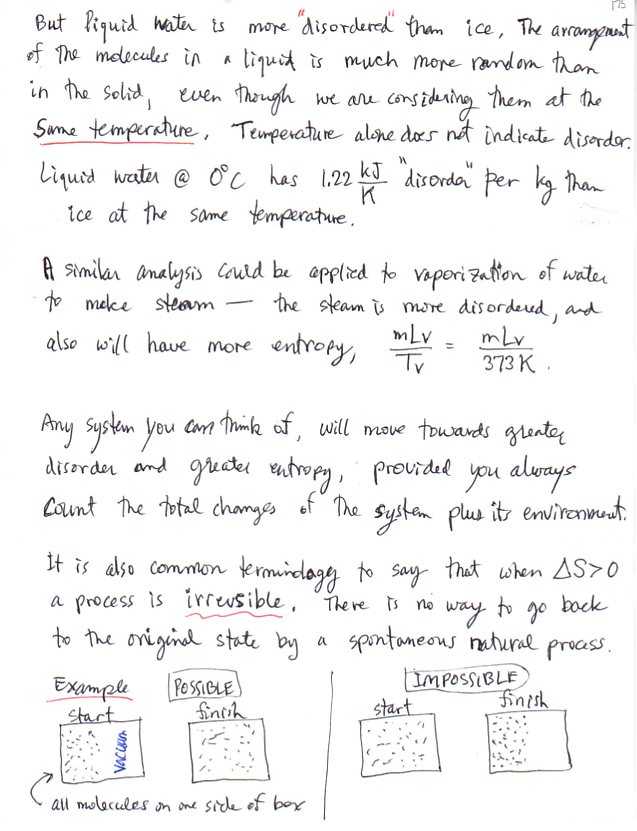 175
But liquid water is more "disordered" than ice, The arrangement
of the molecules in a liquid is much more random than
in the solid, even though we are considering them at the
same temperature. Temperature alone does not indicate disorder.
Liquid water @ 0°C has 1.22 kJ/K "disorder" per kg than
ice at the same temperature.
A similar analysis could be applied to vaporization of water
to make steam — the steam is more disordered, and
also will have more entropy, mLv/Tv = mLv/373K .
Any system you can think of, will move towards greater
disorder and greater entropy, provided you always
count the total changes of the system plus its environment.
It is also common terminology to say that when ΔS>0
a process is irreversible. There is no way to go back
to the original state by a spontaneous natural process.
Example POSSIBLE IMPOSSIBLE
start finish start finish
vacuum
all molecules on one side of box